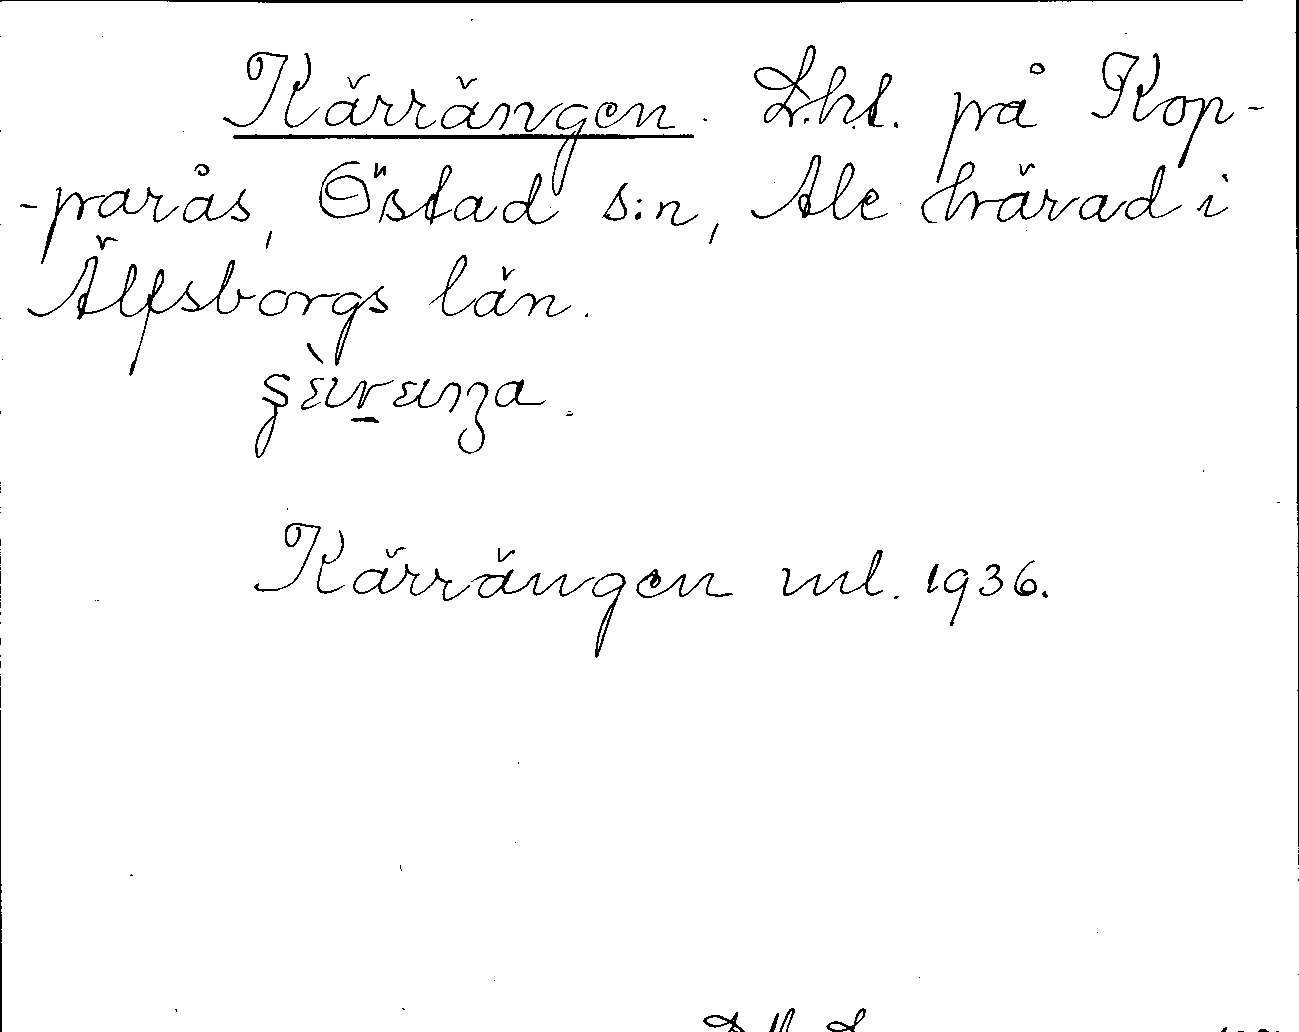 Kärrängen. L.h.t. på Kop-
-parås, Östad s:n, Ale härad i
Älfsborgs län.
Kärrängen ml. 1936.